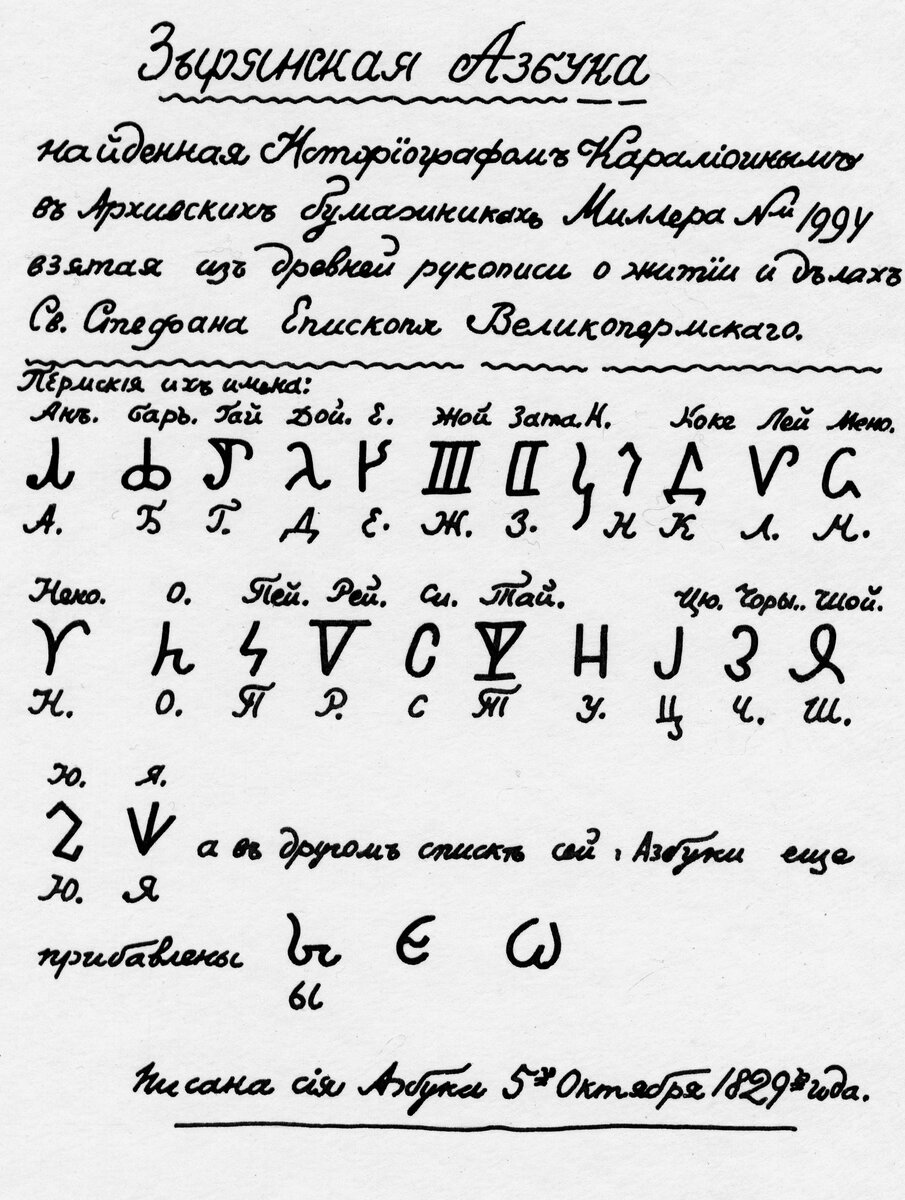 Зырянская Азбука
найденная Исторїографомъ Карамзинымъ
въ Архивскихъ бумажникахъ Миллера № 1994
взятая изъ древней рукописи о житїи и дѣлахъ
Св. Стефана Епископя Великопермскаго.
Пермскія ихъ имена:
Анъ. Баръ. Гай Дой. Е. Жой Зата. И. Коке Лей Мено.
𐍐 𐍑 𐍒 𐍓 𐍔 𐍕 𐍖 𐍙 𐍚 𐍛
А. Б Г. Д Е. Ж. З. И К Л. М.
Нено. О. Пей. Рей. Си. Тай. Цю. Чоры.. Шой.
𐍝 𐍞 𐍟 𐍠 𐍡 𐍢 𐍣
Н. О. П Р. С Т У. Ц Ч. Ш.
Ю. Я.
Ю. Я
а въ другомъ спискѣ сей Азбуки еще
прибавлены Є Ѡ
ы
Писана сія Азбуки 5 Октября 1829 года.